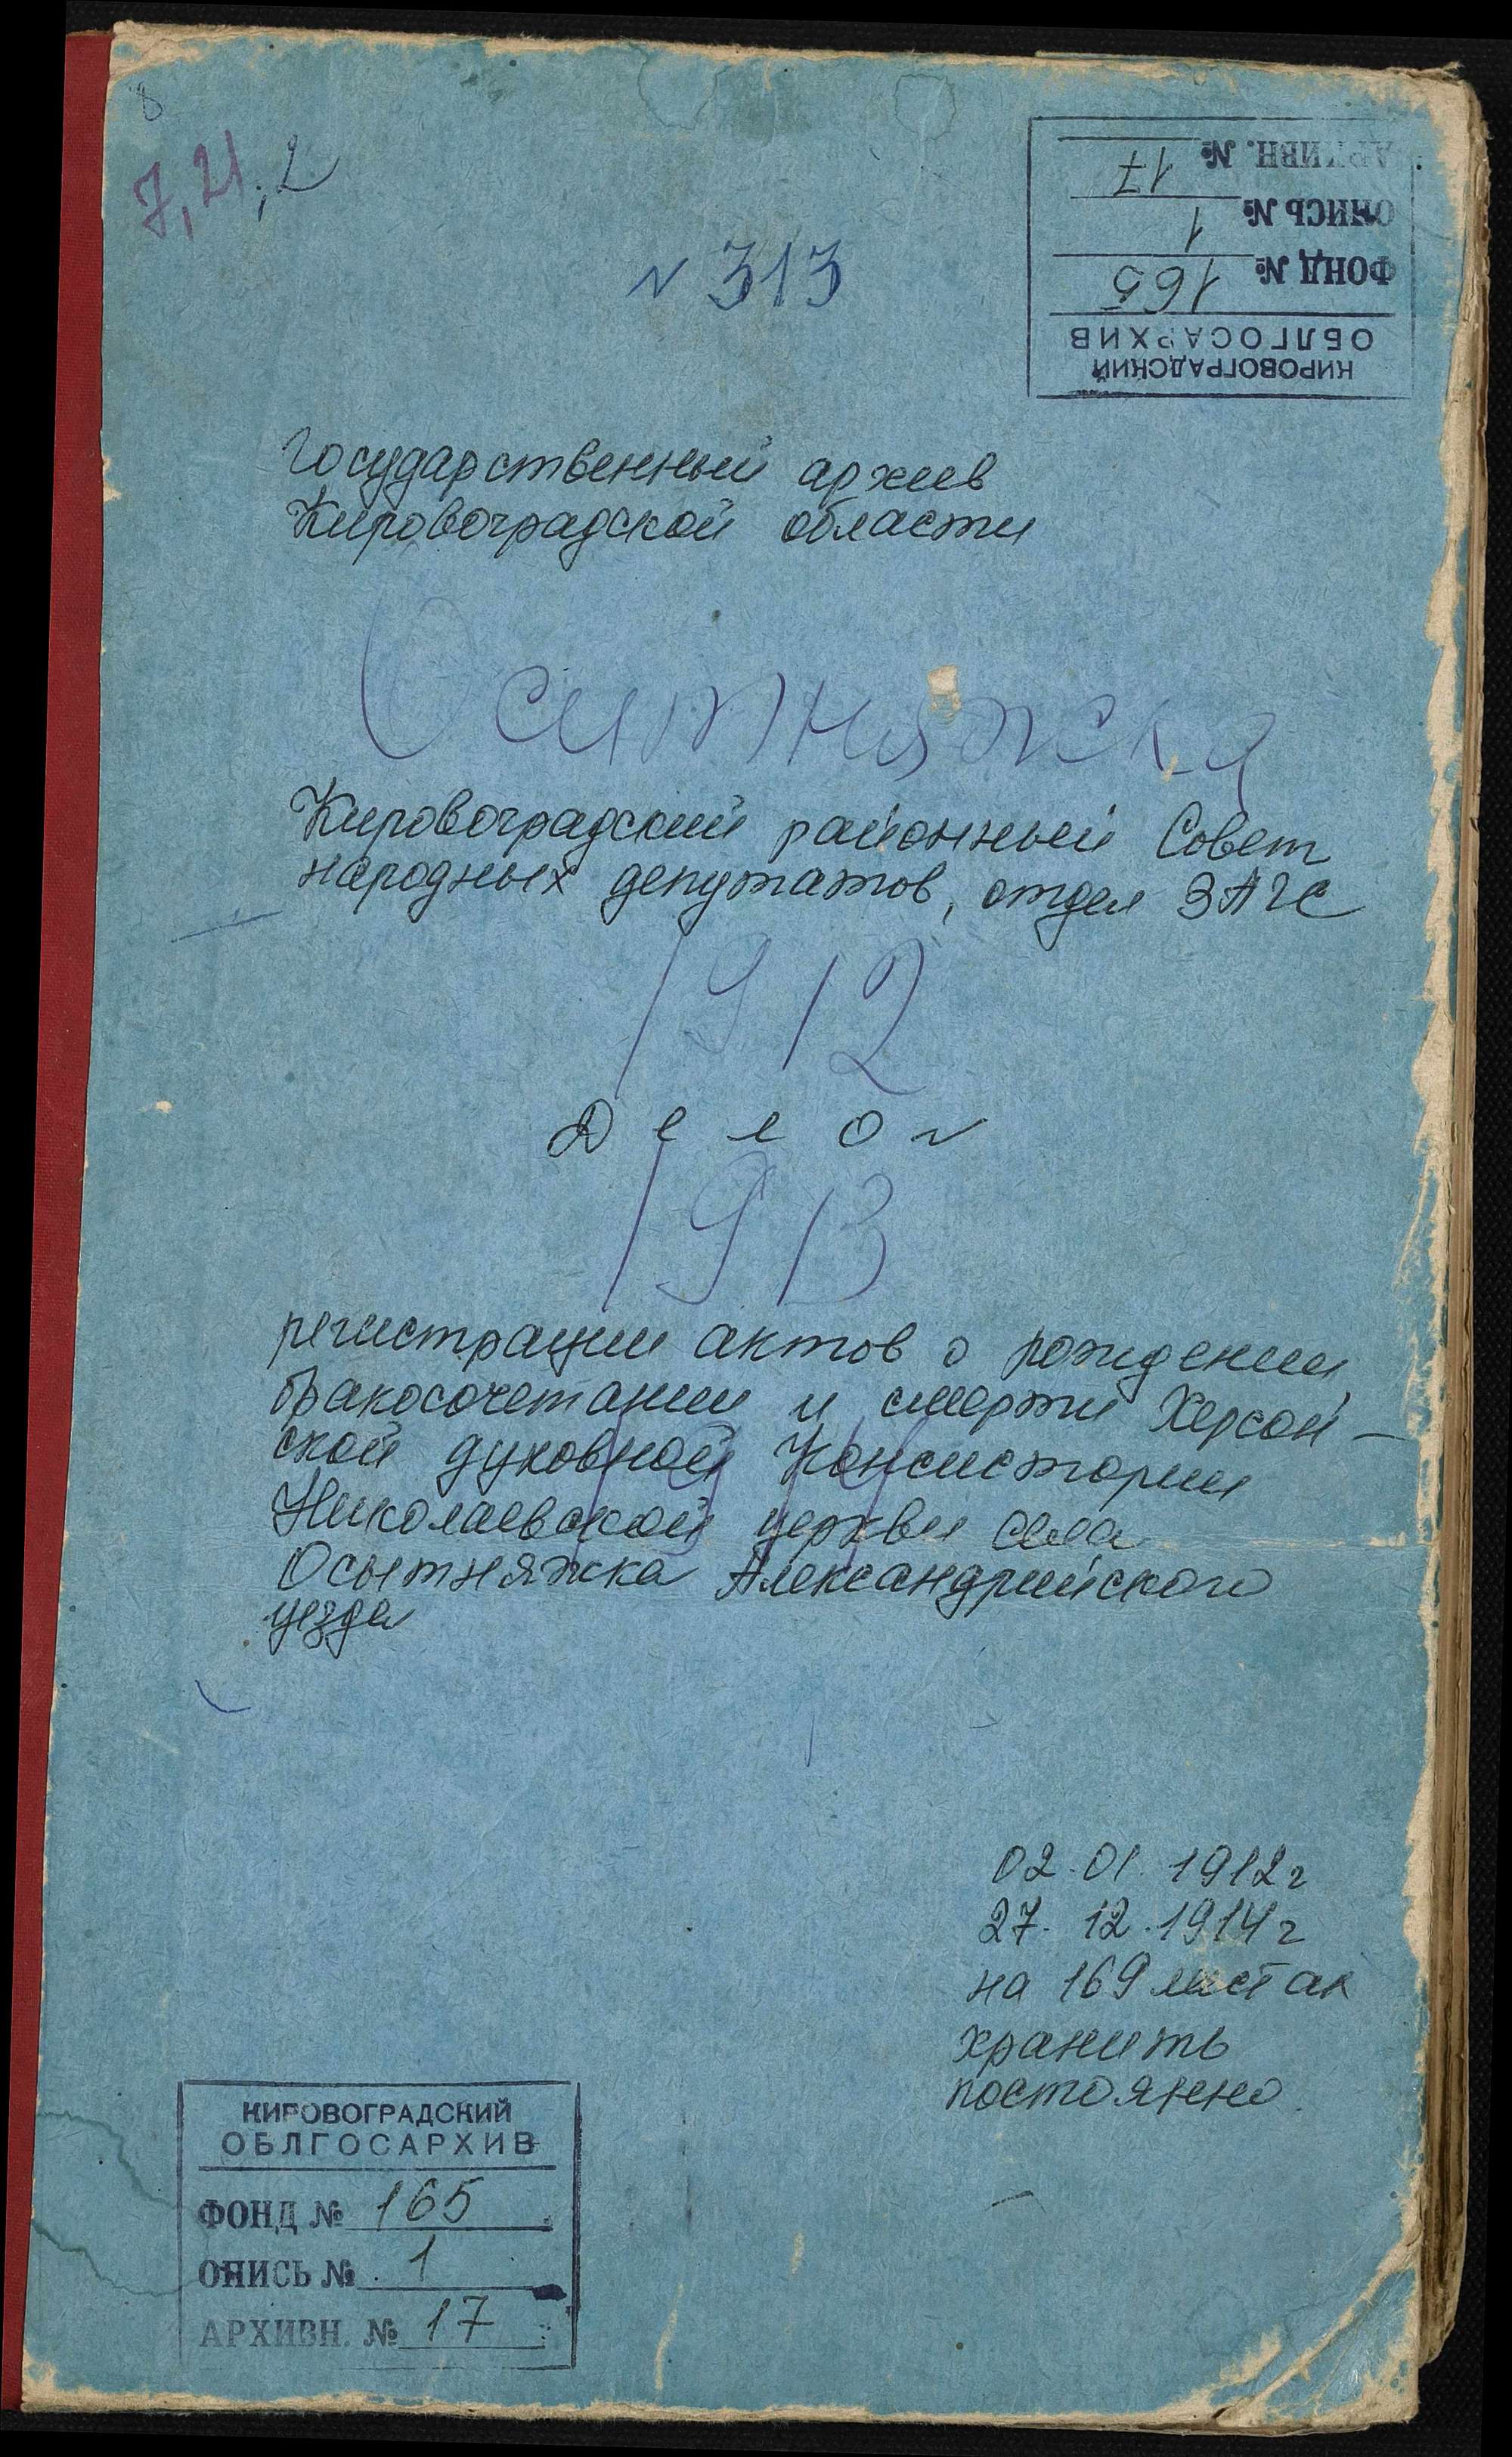 8
7,21; 2
КИРОВОГРАДСКИЙ
ОБЛГОСАРХИВ
ФОНД № 165
ОПИСЬ № 1
АРХИВН. № 17
N 313
Государственный архив
Кировоградской области
Оситняжска
Кировоградский районный Совет
народных депутатов, отдел ЗАГС
1912
Дело N
1913
регистрации актов о рождении,
бракосочетании и смерти Херсон-
ской духовной Консистории
1914
Николаевской церкви села
Осытняжка Александрийского
уезда
02.01.1912г
27.12.1914г
на 169 листах
хранить
постоянно.
КИРОВОГРАДСКИЙ
ОБЛГОСАРХИВ
ФОНД № 165
ОПИСЬ № 1
АРХИВН. № 17